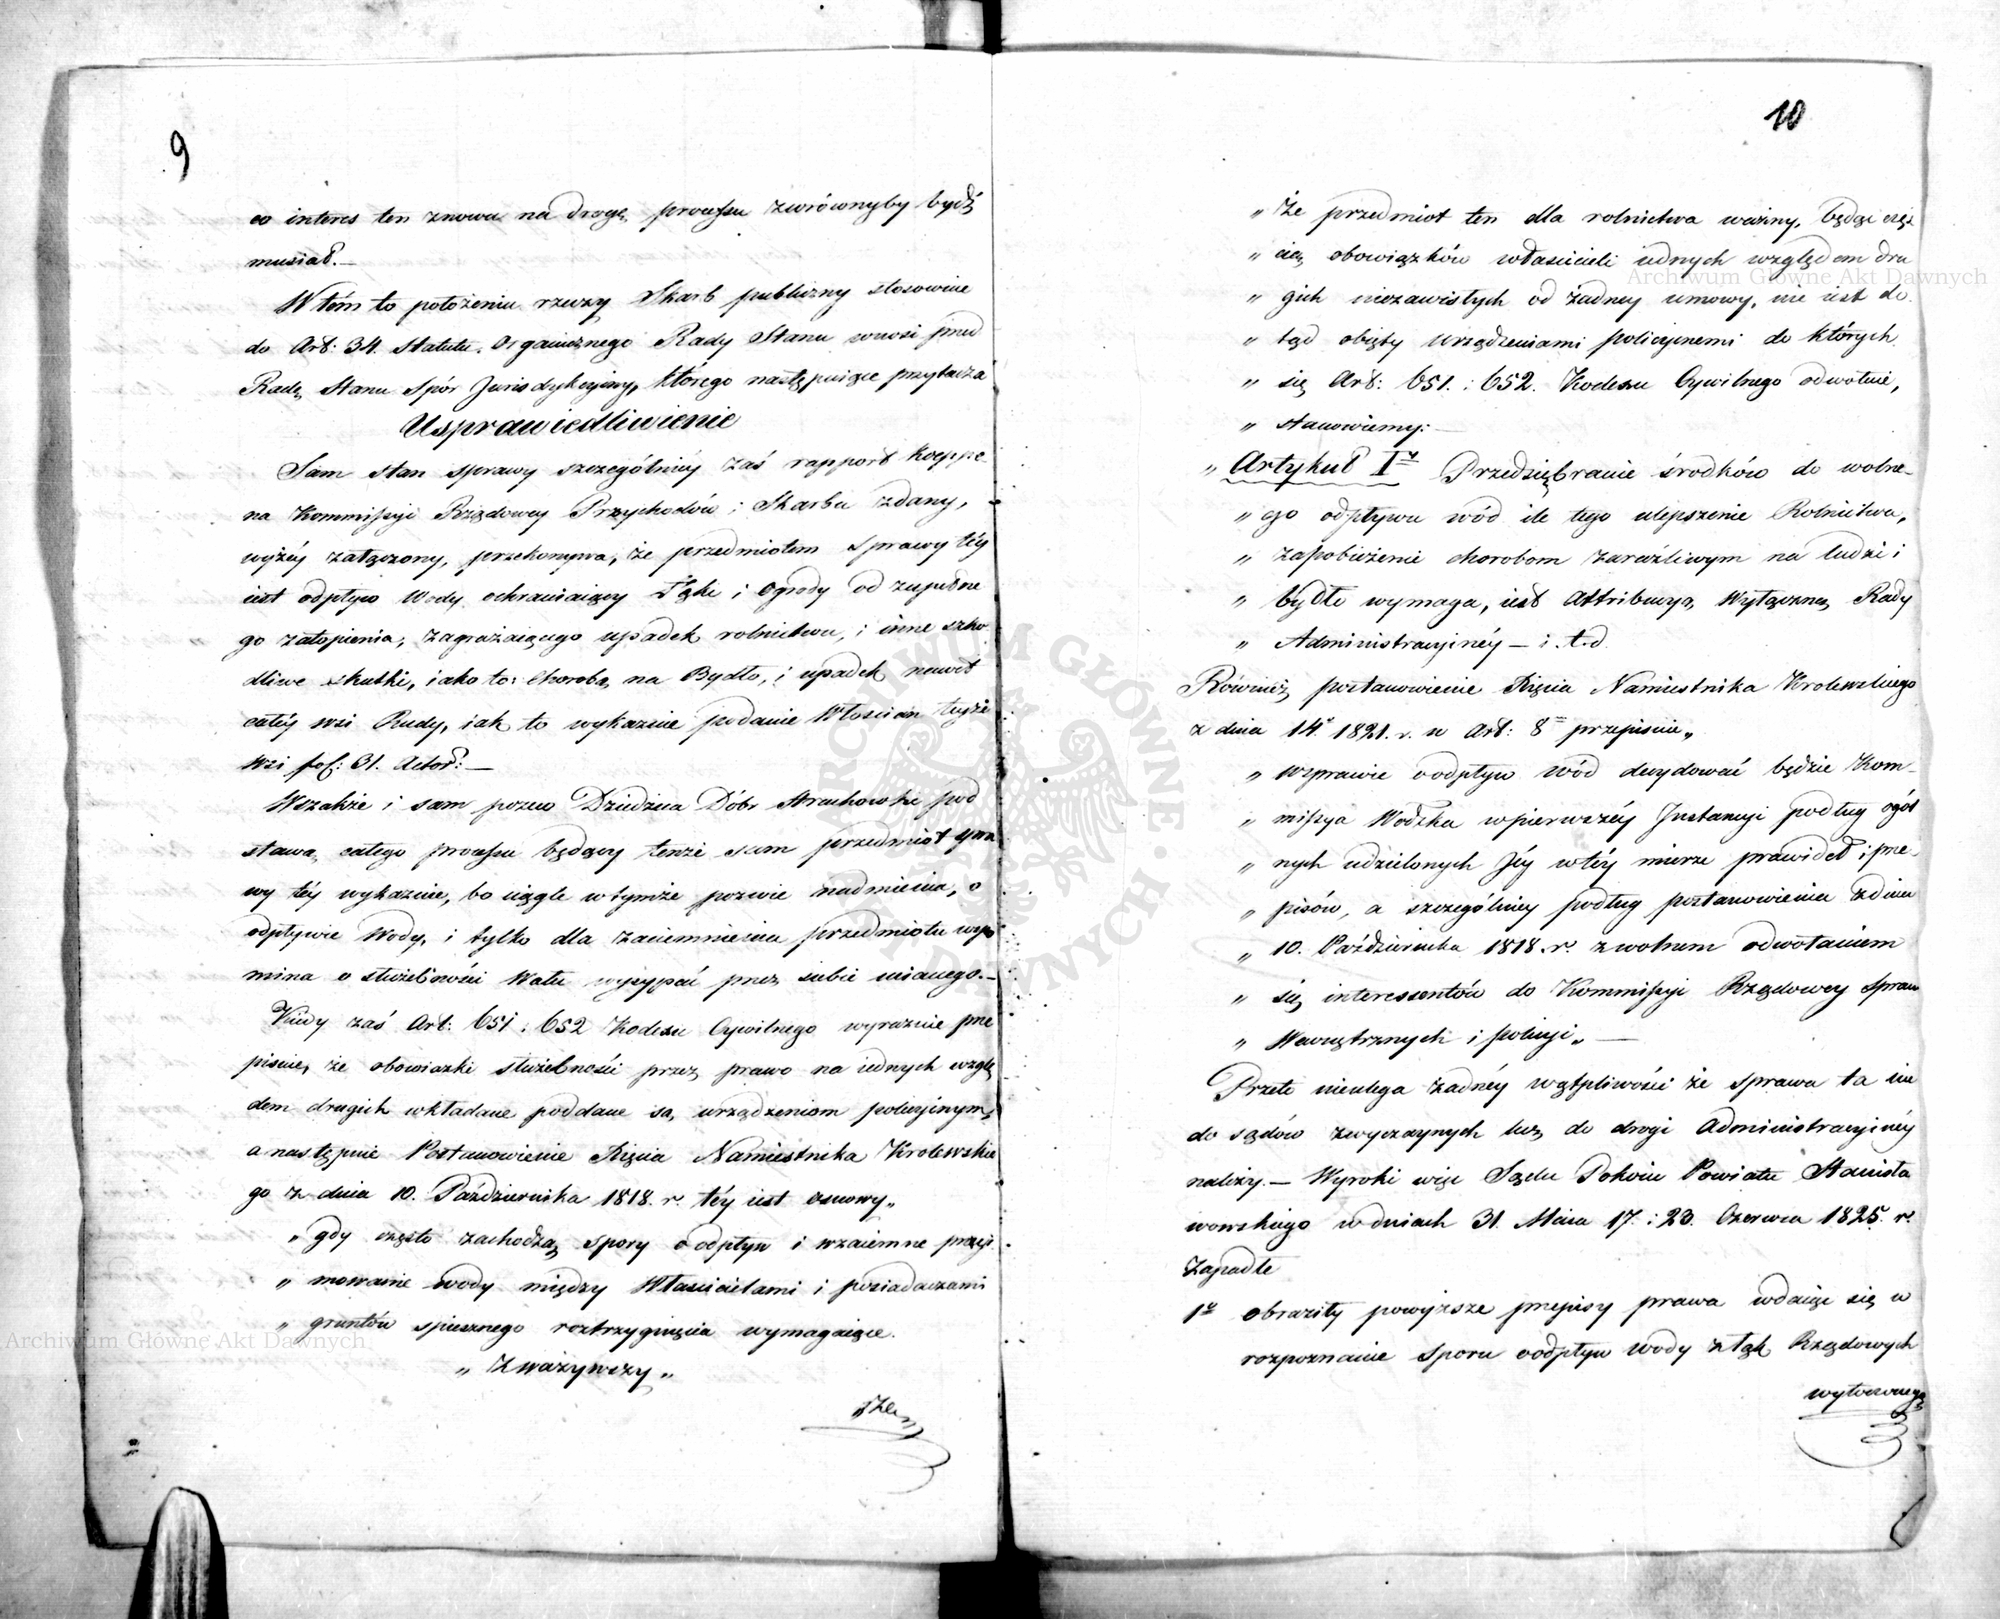 9
co interes ten znowu na drogę processu zwróconyby bydź
musiał.—
W tém to położeniu rzeczy Skarb publiczny stosownie
do Art: 34. Statutu Organicznego Rady Stanu wnosi przed
Radę Stanu Spór Jurisdykcyiny, którego następuiące przytacza
Usprawiedliwienie
Sam stan sprawy szczególniéy zaś rapport Koeppe
na Kommissyi Rządowey Przychodów i Skarbu zdany,
wyżéy załączony, przekonywa, że przedmiotem sprawy téy
iest odpływ Wody ochraniaiący Łąki i Ogrody od zupełne
go zatopienia, zagrażaiącego upadek rolnictwu, i inne szko
dliwe skutki, iako to: chorobę na Bydło, i upadek nawet
całéy wsi Rudy, iak to wykazuie podanie Włoscian teyże
wsi fol: 31. Actor:—
Wszakże i sam pozew Dziedzica Dóbr Strachowki pod
stawą całego processu będący tenże sam przedmiot spra
wy téy wykazuie, bo ciągle w tymże pozwie nadmienia, o
odpływie Wody, i tylko dla zaciemnienia przedmiotu wspo
mina o służebności Wału wysypać przez siebie mianego.—
Kiedy zaś Art: 651 i 652 Kodexu Cywilnego wyraznie prze
pisuie, że obowiazki służebności przez prawo na iednych wzglę
dem drugich wkładane poddane są urządzeniom policyinym,
a następnie Postanowienie Xięcia Namiestnika Krolewskie
go z dnia 10. Października 1818. r. téy iest osnowy„
„ gdy często zachodzą spory o odpływ i wzaiemne przyi
„ mowanie wody między Właścicielami i posiadaczami
„ gruntów spiesznego roztrzygnięcia wymagaiące.
„ Zważywszy„
„Że„
10
„ Że przedmiot ten dla rolnictwa ważny, będąc częś
„ cią obowiązków właścicieli iednych względem dru
„ gich niezawisłych od żadney umowy, nie iest do
„ tąd obięty urządzeniami policyinemi do których
„ się Art: 651. i 652. Kodexu Cywilnego odwołuie,
„ stanowiemy:—
„ Artykuł Iy Przedsiębranie środków do wolne-
„ go odpływu wód ile tego ulepszenie Rolnictwa,
„ zapobieżenie chorobom zaraźliwym na ludzi i
„ bydło wymaga, iest Attribucyą Wyłączną Rady
„ Administracyinéy — i. t. d
Również postanowienie Xięcia Namiestnika Krolewskiego
z dnia 14. 1821. r. w Art: 8m przepisuie„
„ wsprawie o odpływ wód decydować będzie Kom-
„ missya Wodzka w pierwszéy Instancyi podług ogól
„ nych udzielonych Jéy w téy mierze prawideł i prze-
„ pisów, a szczególniey podług postanowienia z dnia
„ 10. Października 1818. r. z wolnem odwołaniem
„ się interessentów do Kommissyi Rządowey Spraw
„ Wewnętrznych i policyi„ —
Przeto nieulega żadnéy wątpliwości że sprawa ta nie
do sądów zwyczaynych lecz do drogi Administracyinéy
należy.— Wyroki więc Sądu Pokoiu Powiatu Stanisła
wowskiego w dniach 31. Maia 17. i 23. Czerwca 1825. r.
zapadłe
1o obraziły powyższe przepisy prawa wdaiąc się w
rozpoznanie sporu o odpływ wody z łąk Rządowych
wytoczonego